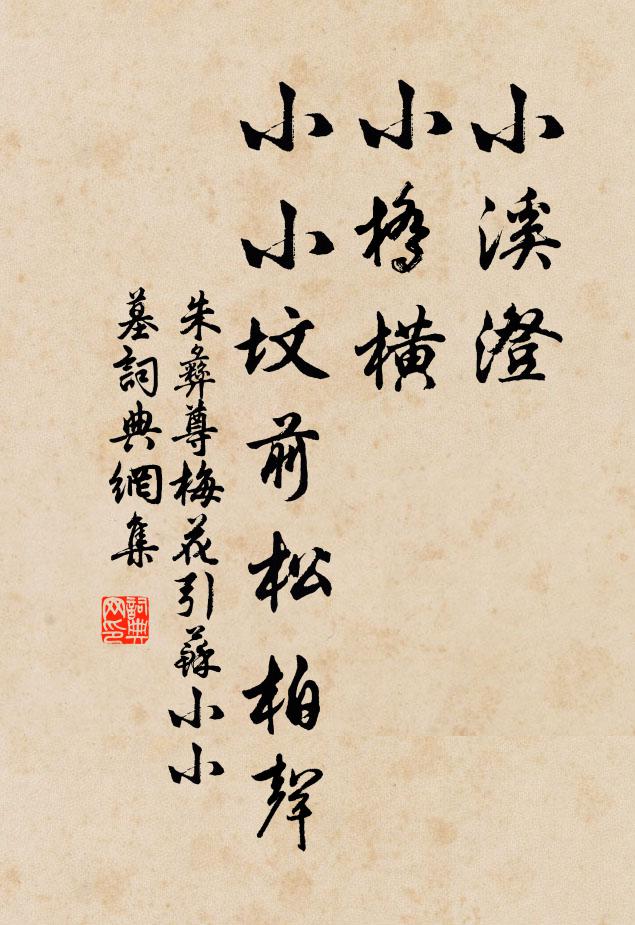 小溪澄
小橋橫
小小坟前松柏聲
朱彝尊梅花引蘇小小
墓詞典網集
詞典网印